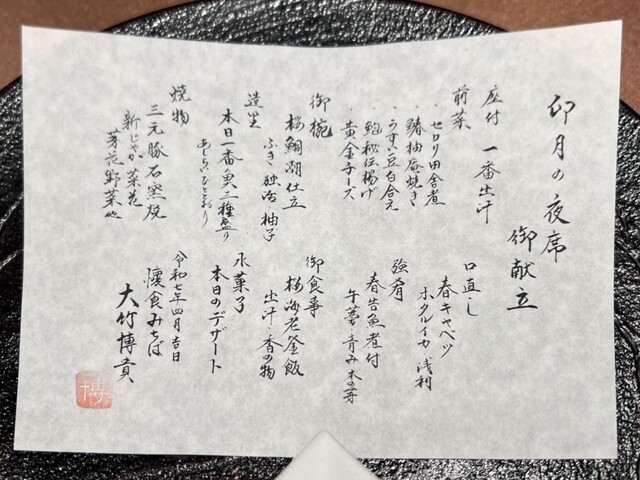 卯月の夜席
御献立
座付 一番出汁
前菜
・セロリ田舎煮
・鰆柚庵焼き
・うすい豆白合え
・鮑秘伝揚げ
・黄金チーズ
御椀
桜鯛潮仕立
ふき 独活 柚子
造里
本日一番魚二種盛り
あしらいひととおり
焼物
三元豚石窯焼
新じゃが 菜花
芽花野菜他
口直し
春キャベツ
ホタルイカ 浅利
強肴
春告魚煮付
牛蒡 青み 木の芽
御食事
桜海老釜飯
出汁・香の物
水菓子
本日のデザート
令和七年四月吉日
懐食みちば
大竹博貴
博